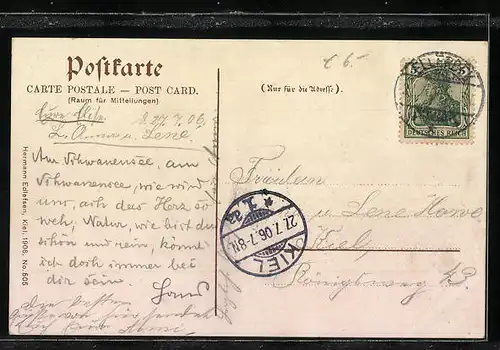 Postkarte
CARTE POSTALE — POST CARD.
(Raum für Mitteilungen)
27.7.06.
L. Anna u. Lene!
Am Schwanensee, am
Schwanensee, wie wird
uns, ach das Herz so
weh, Natur, wie bist du
schön und rein, könnt
ich doch immer bei
dir sein.
Die besten
Grüße von hier sendet
Hermann Edlefsen, Kiel 1906. No. 505
6.-
(Nur für die Adresse.)
DEUTSCHES REICH
Fräulein
u. Lene
Kiel
Königsweg 43.
KIEL
27.7.06.7-8N.